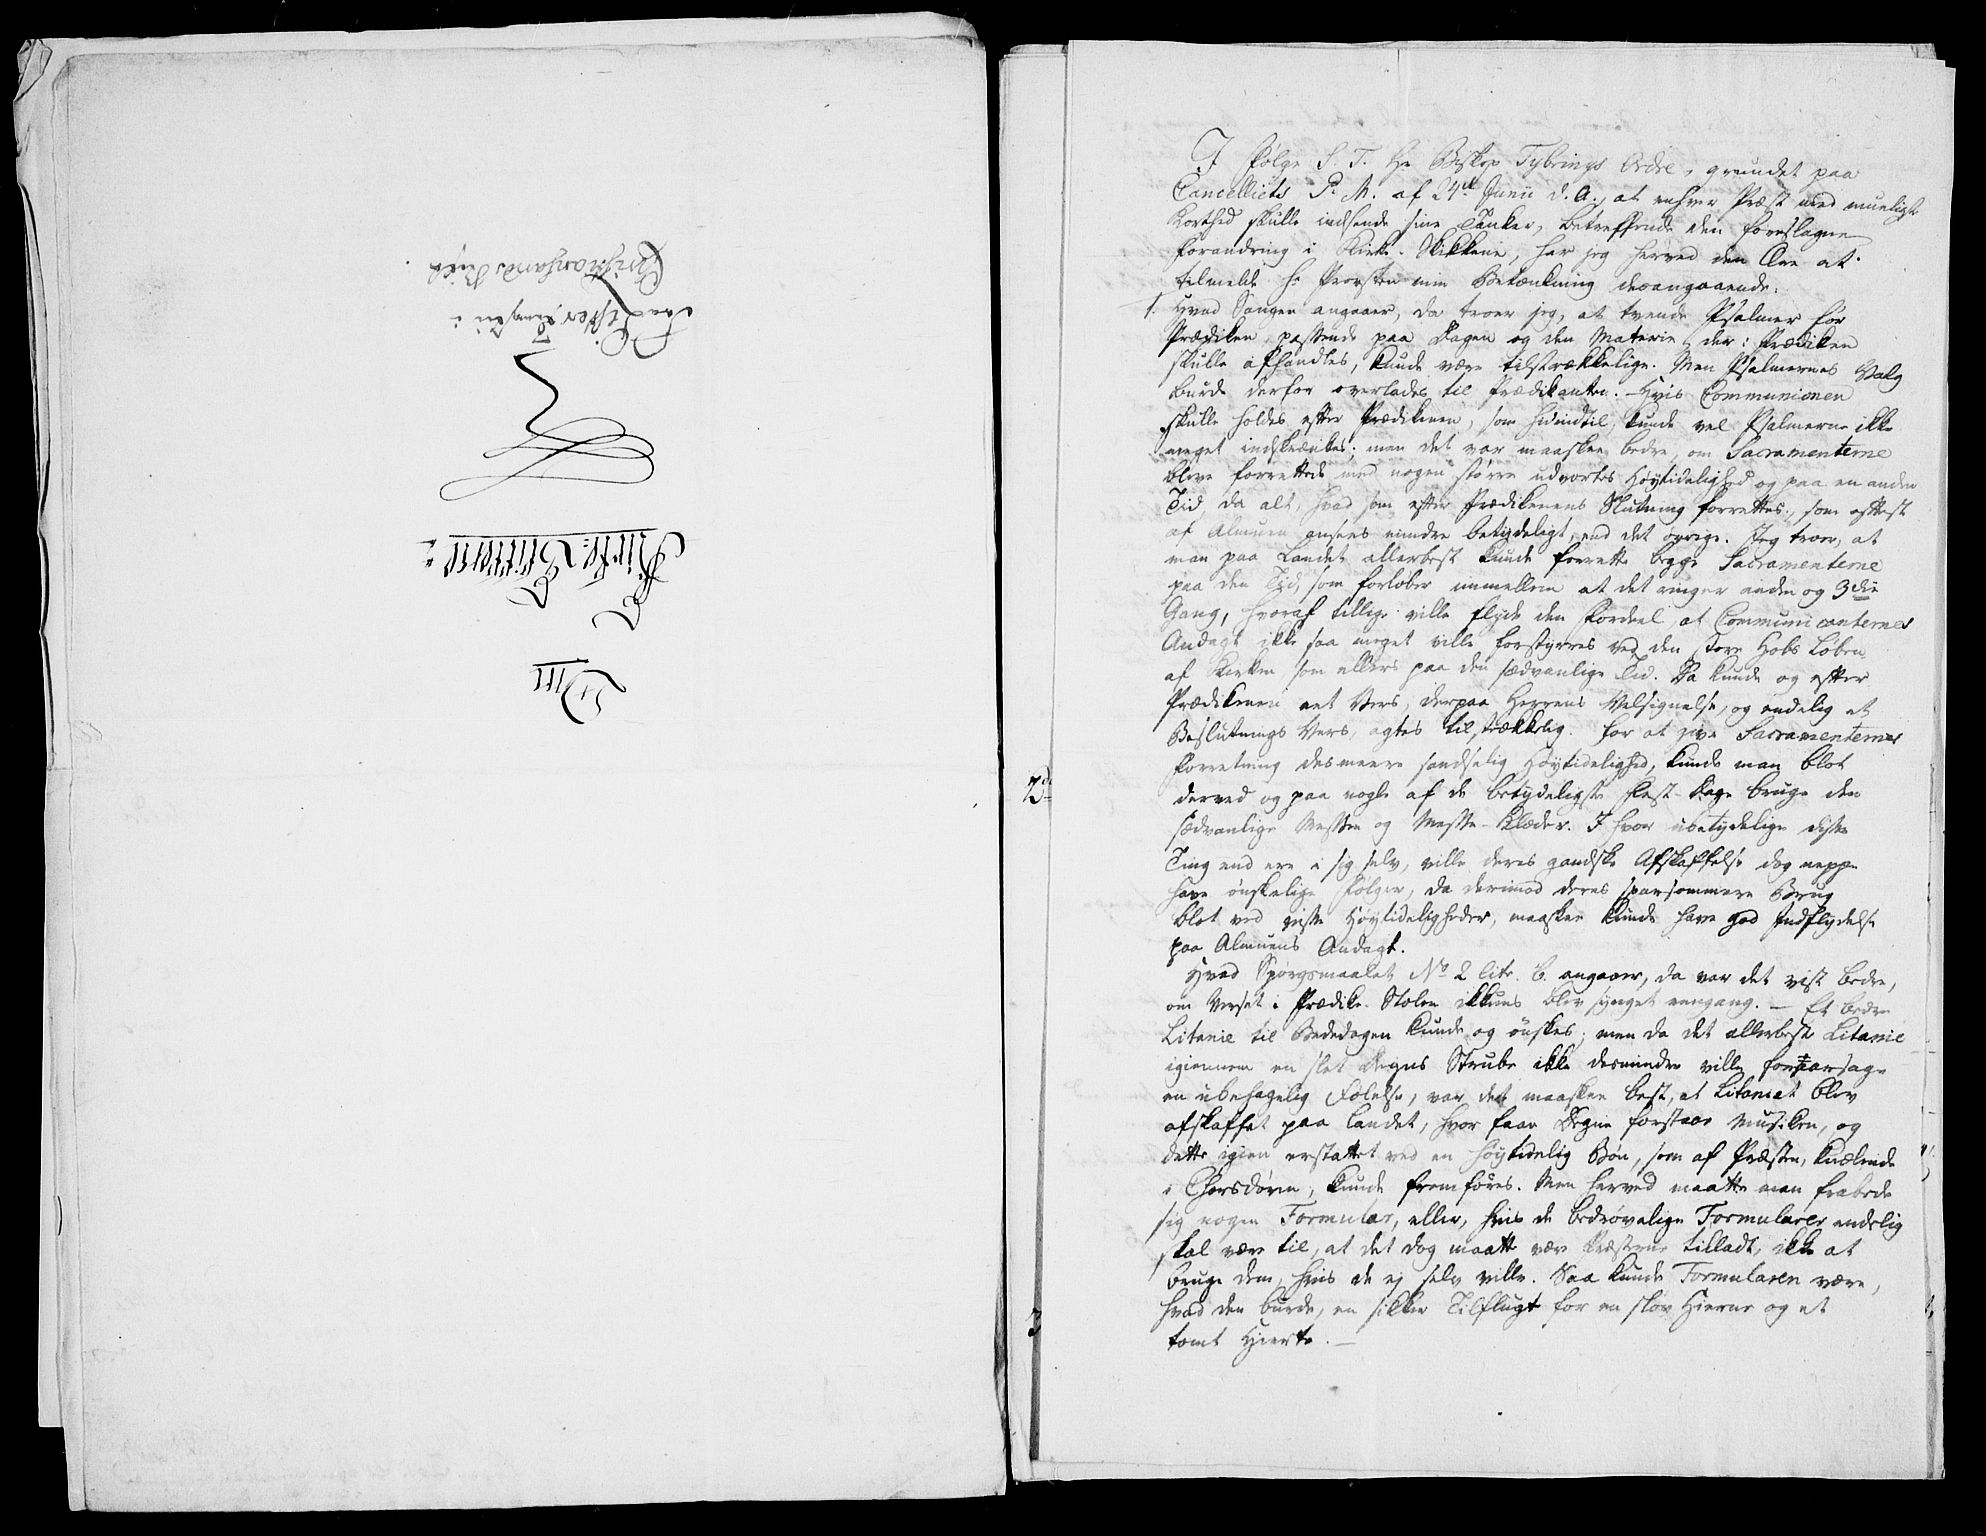 Om
Kirke-Skikkene
Paa Lister Provsti i
Christiansands Stift
I følge S. T. Hr Biskop Tybrings Ordre, grundet paa
Cancelliets P. M. af 24de Junii d. A., at enhver Præst med mueligst
Korthed skulle indsende sine Tanker, betreffende den foreslagne
Forandring i Kirke-Skikkene, har jeg herved den Ære at
tilmelde Hr Provsten min Betænkning desangaaende:
1. Hvad Sangen angaaer, da troer jeg, at tvende Psalmer før
Prædiken, passende paa Dagen og den Materie, der i Prædiken
skulle afhandles, kunde være tilstrækkelige. Men Psalmernes Valg
burde derfor overlades til Prædikanten. Hvis Communionen
skulle holdes efter Prædikenen, som hidindtil, kunde vel Psalmerne ikke
meget indskrænkes: men det var maaskee bedre, om Sacramenterne
bleve forrettede med nogen større udvortes Høytidelighed og paa en anden
Tid, da alt, hvad som efter Prædikenens Slutning forrettes, som oftest
af Almuen ansees mindre betydeligt, end det øvrige. Jeg troer, at
man paa Landet allerbest kunde forrette begge Sacramenterne
paa den Tid, som forløber imellem at det ringer anden og 3die
Gang, hvoraf tillige ville flyde den Fordeel, at Communicanternes
Andagt ikke saa meget ville forstyrres ved den store Hobs Løben
af Kirken som ellers paa den sædvanlige Tid. Da kunde og efter
Prædikenen eet Vers, derpaa Herrens Velsignelse, og endelig et
Beslutnings Vers, agtes tilstrækkelig. For at give Sacramenternes
Forretning desmeere sandselig Høytidelighed, kunde man blot
derved og paa nogle af de betydeligste Fest-Dage bruge den
sædvanlige Messen og Messe-Klæder. I hvor ubetydelige disse
Ting end ere i sig selv, ville deres gandske Afskaffelse dog neppe
have ønskelige Følger, da derimod deres sparsommere Brug
blot ved visse Høytideligheder, maaskee kunde have god Indflydelse
paa Almuens Andagt.
2de
Hvad Spørgsmaalet No 2 litr. b. angaaer, da var det vist bedre,
om Verset i Prædike-Stolen ikkuns blev synget eengang. — Et bedre
Litanie til Bededagen kunde og ønskes; men da det allerbeste Litanie
igiennem en slet Degns Strube ikke desmindre ville foraarsage
en ubehagelig Følelse, var det maaskee best, at Litaniet blev
afskaffet paa Landet, hvor faae Degne forstaae Musiken, og
dette igien erstattet ved en høytidelig Bøn, som af Præsten, knælende
i Chorsdøren, kunde fremføres. Men herved maatte man frabede
sig nogen Formular, eller, hvis de bedrøvelige Formularer endelig
skal være til, at det dog maatte være Præsterne tilladt, ikke at
bruge dem, hvis de ej selv ville. Saa kunde Formularen være,
hvad den burde, en sikker Tilflugt for en sløv Hierne og et
tomt Hierte. —
3